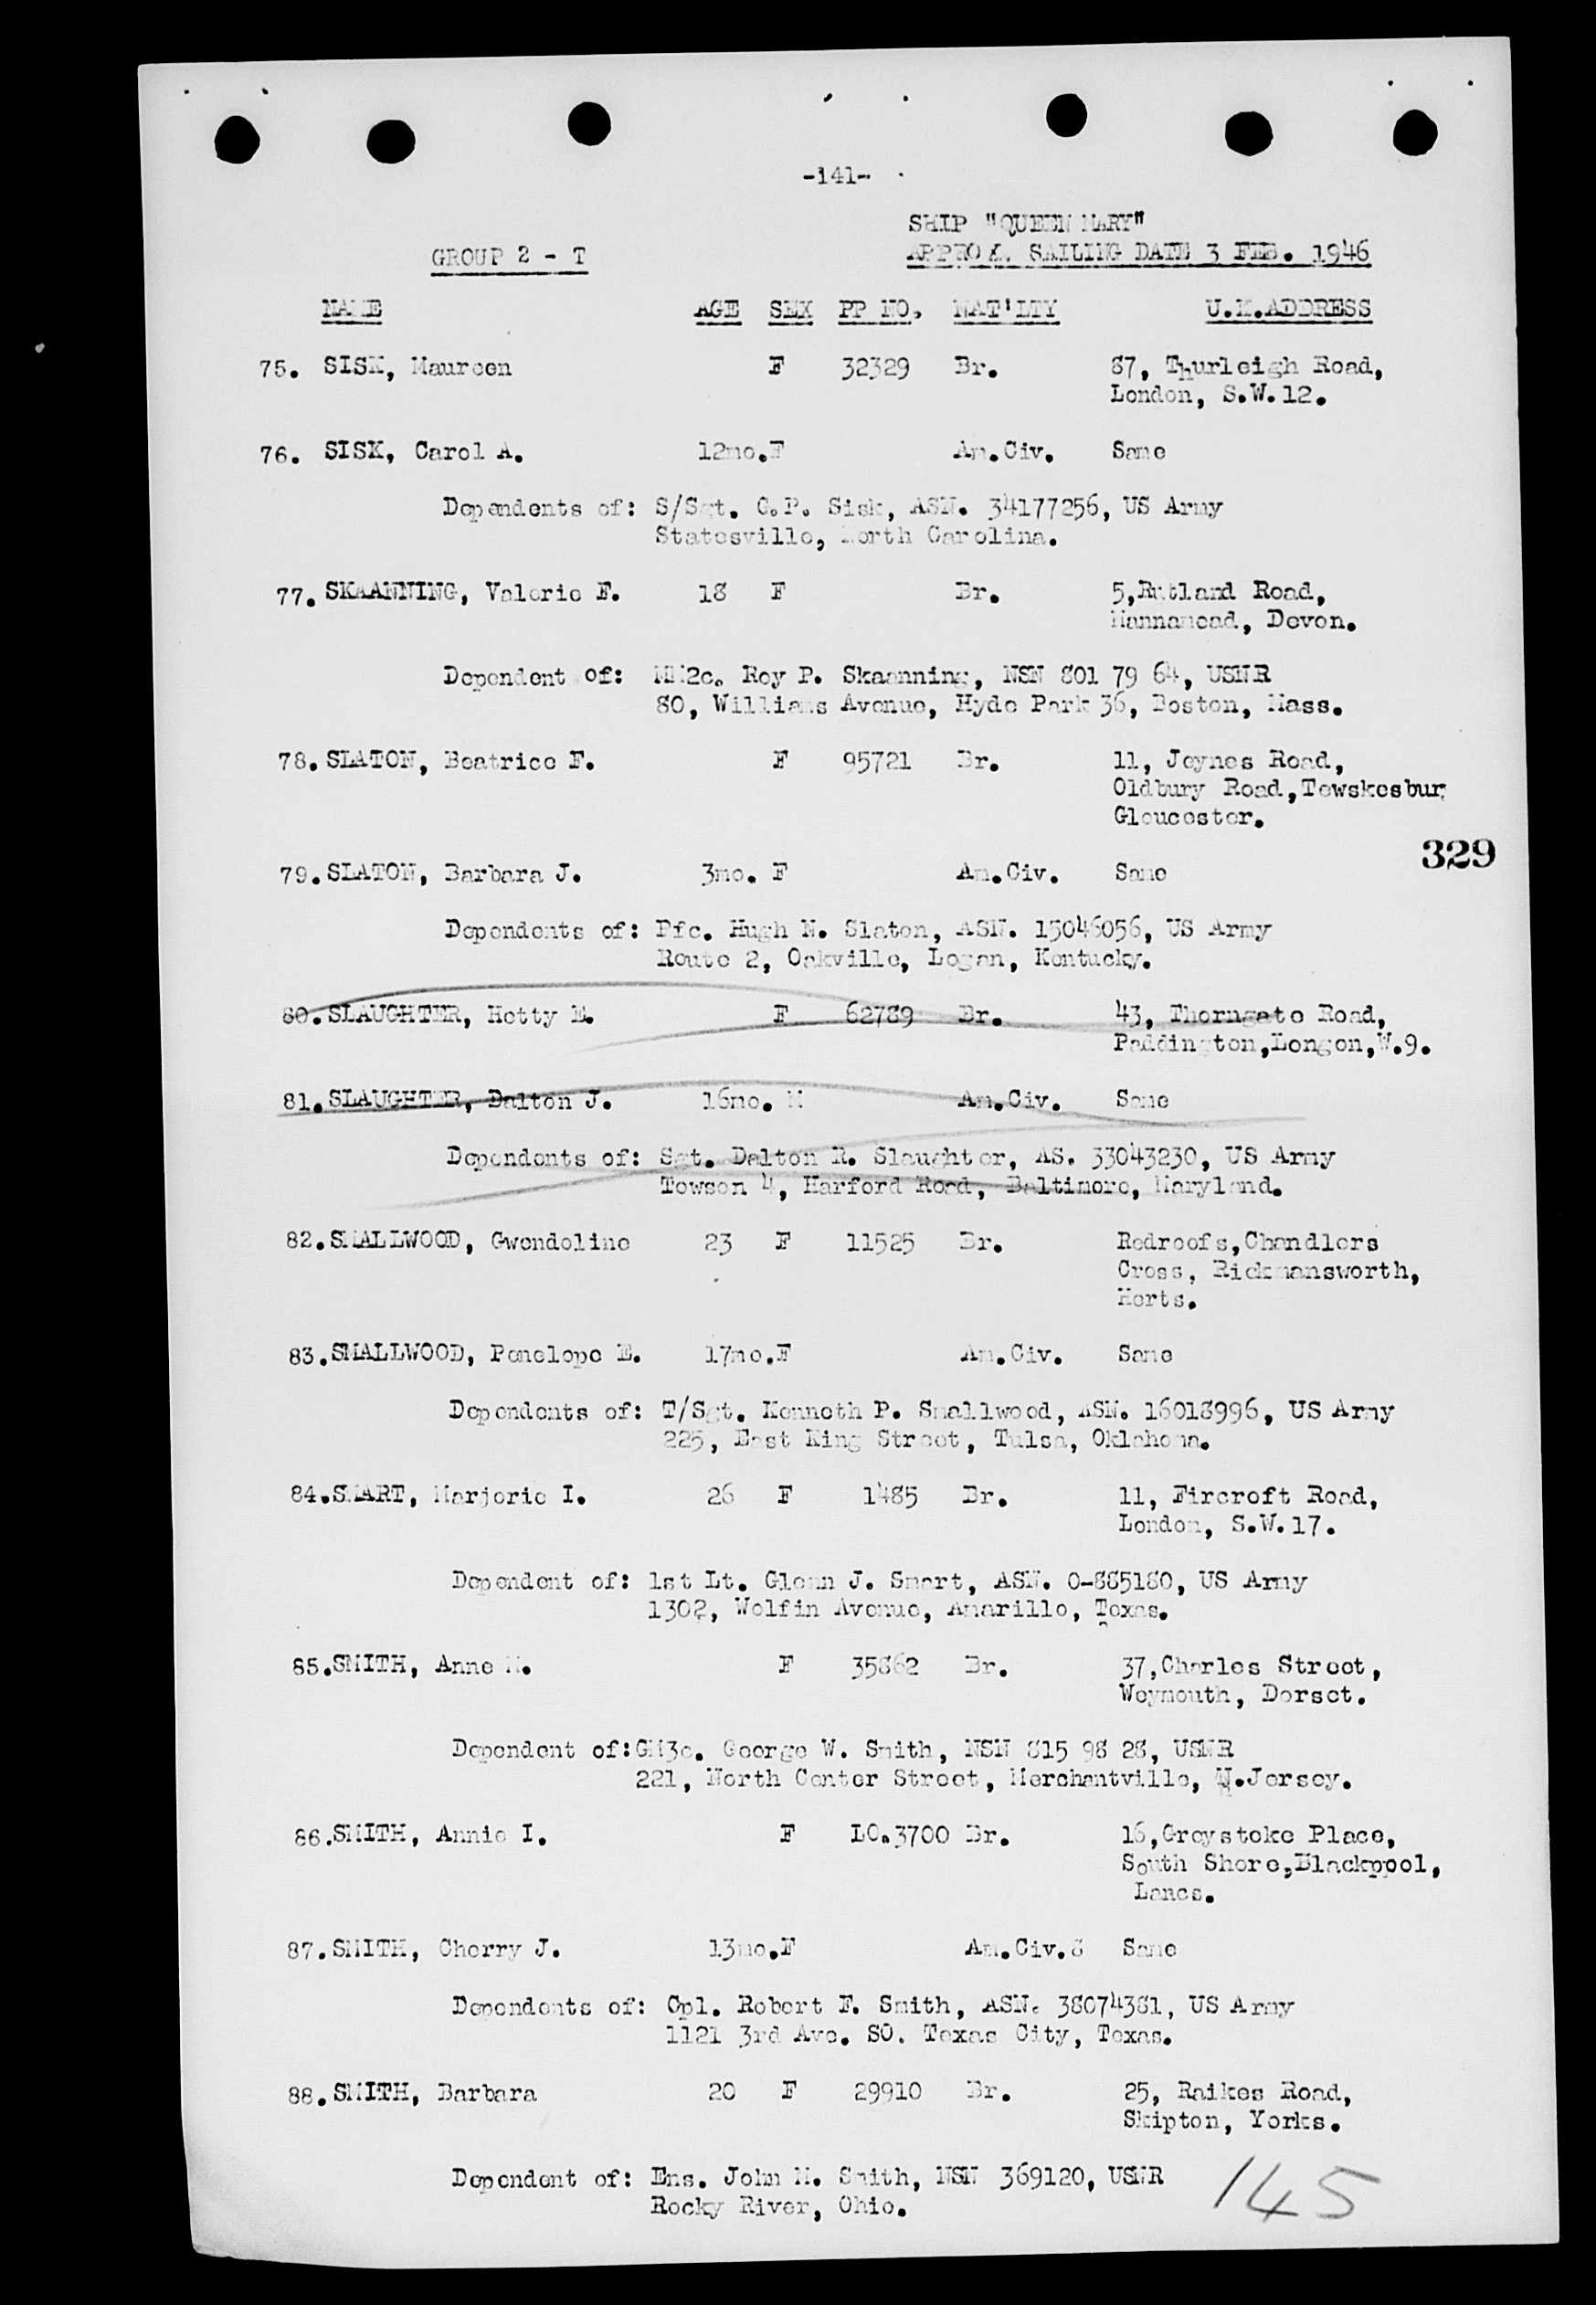 -141-
SHIP "QUEEN MARY"
GROUP 2 - T
APPROX. SAILING DATE 3 FEB. 1946
NAME AGE SEX PP NO. NAT'LTY U.K.ADDRESS
75. SISK, Maureen F 32329 Br. 87, Thurleigh Road,
London, S.W.12.
76. SISK, Carol A. 12mo. F Am.Civ. Same
Dependents of: S/Sgt. C.P. Sisk, ASN. 34177256, US Army
Statesville, North Carolina.
77. SKAANNING, Valerie F. 18 F Br. 5,Rutland Road,
Mannamead, Devon.
Dependent of: MM2c. Roy P. Skaanning, NSN 801 79 64, USNR
80, Williams Avenue, Hyde Park 36, Boston, Mass.
78. SLATON, Beatrice F. F 95721 Br. 11, Joynes Road,
Oldbury Road,Tewskesbur
Gloucester.
329
79. SLATON, Barbara J. 3mo. F Am.Civ. Same
Dependents of: Pfc. Hugh N. Slaton, ASN. 15046056, US Army
Route 2, Oakville, Logan, Kentucky.
80. SLAUGHTER, Hetty E. F 62789 Br. 43, Thorngate Road,
Paddington,Longon,W.9.
81. SLAUGHTER, Dalton J. 16mo. M Am.Civ. Same
Dependents of: Sgt. Dalton R. Slaughter, AS. 33043230, US Army
Towson 4, Harford Road, Baltimore, Maryland.
82. SMALLWOOD, Gwendoline 23 F 11525 Br. Redroofs,Chandlers
Cross, Rickmansworth,
Herts.
83. SMALLWOOD, Penelope E. 17mo. F Am.Civ. Same
Dependents of: T/Sgt. Kenneth P. Smallwood, ASN. 16018996, US Army
225, East King Street, Tulsa, Oklahoma.
84. SMART, Marjorie I. 26 F 1485 Br. 11, Fircroft Road,
London, S.W.17.
Dependent of: 1st Lt. Glenn J. Smart, ASN. O-885180, US Army
1302, Wolfin Avenue, Amarillo, Texas.
85. SMITH, Anne M. F 35862 Br. 37,Charles Street,
Weymouth, Dorset.
Dependent of: GM3c. George W. Smith, NSN 815 98 28, USNR
221, North Center Street, Merchantville, N.Jersey.
86. SMITH, Annie I. F LO.3700 Br. 16,Greystoke Place,
South Shore,Blackpool,
Lancs.
87. SMITH, Cherry J. 13mo. F Am.Civ.S Same
Dependents of: Cpl. Robert F. Smith, ASN. 38074381, US Army
1121 3rd Ave. SO. Texas City, Texas.
88. SMITH, Barbara 20 F 29910 Br. 25, Raikes Road,
Skipton, Yorks.
Dependent of: Ens. John M. Smith, NSN 369120, USNR
Rocky River, Ohio.
145